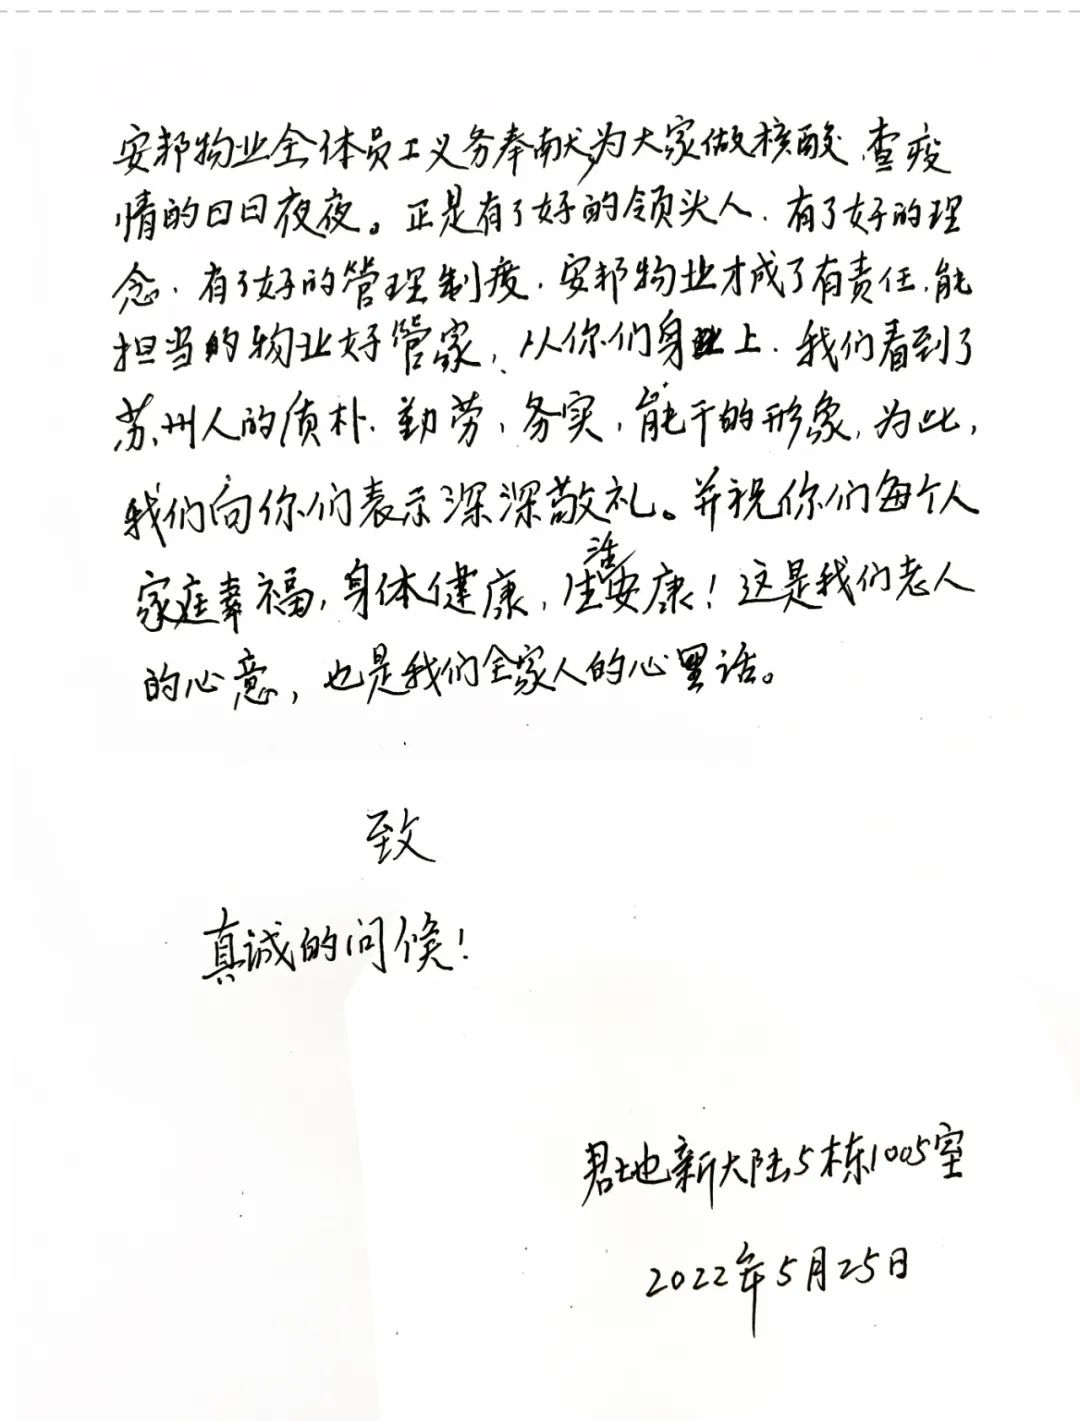 安邦物业全体员工义务奉献,为大家做核酸、查疫
情的日日夜夜。正是有了好的领头人、有了好的理
念、有了好的管理制度、安邦物业才成了有责任、能
担当的物业好管家,从你们身上、我们看到了
苏州人的质朴、勤劳,务实,能干的形象,为此,
我们向你们表示深深敬礼。并祝你们每个人
家庭幸福,身体健康,生活安康!这是我们老人
的心意,也是我们全家人的心里话。
致
真诚的问候!
君地新大陆5栋1005室
2022年5月25日